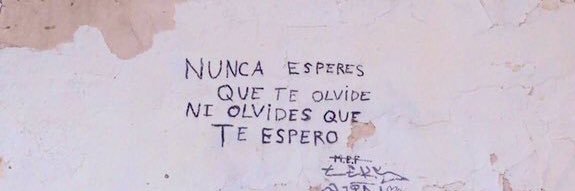 NUNCA ESPERES
QUE TE OLVIDE
NI OLVIDES QUE
TE ESPERO
M.P.P